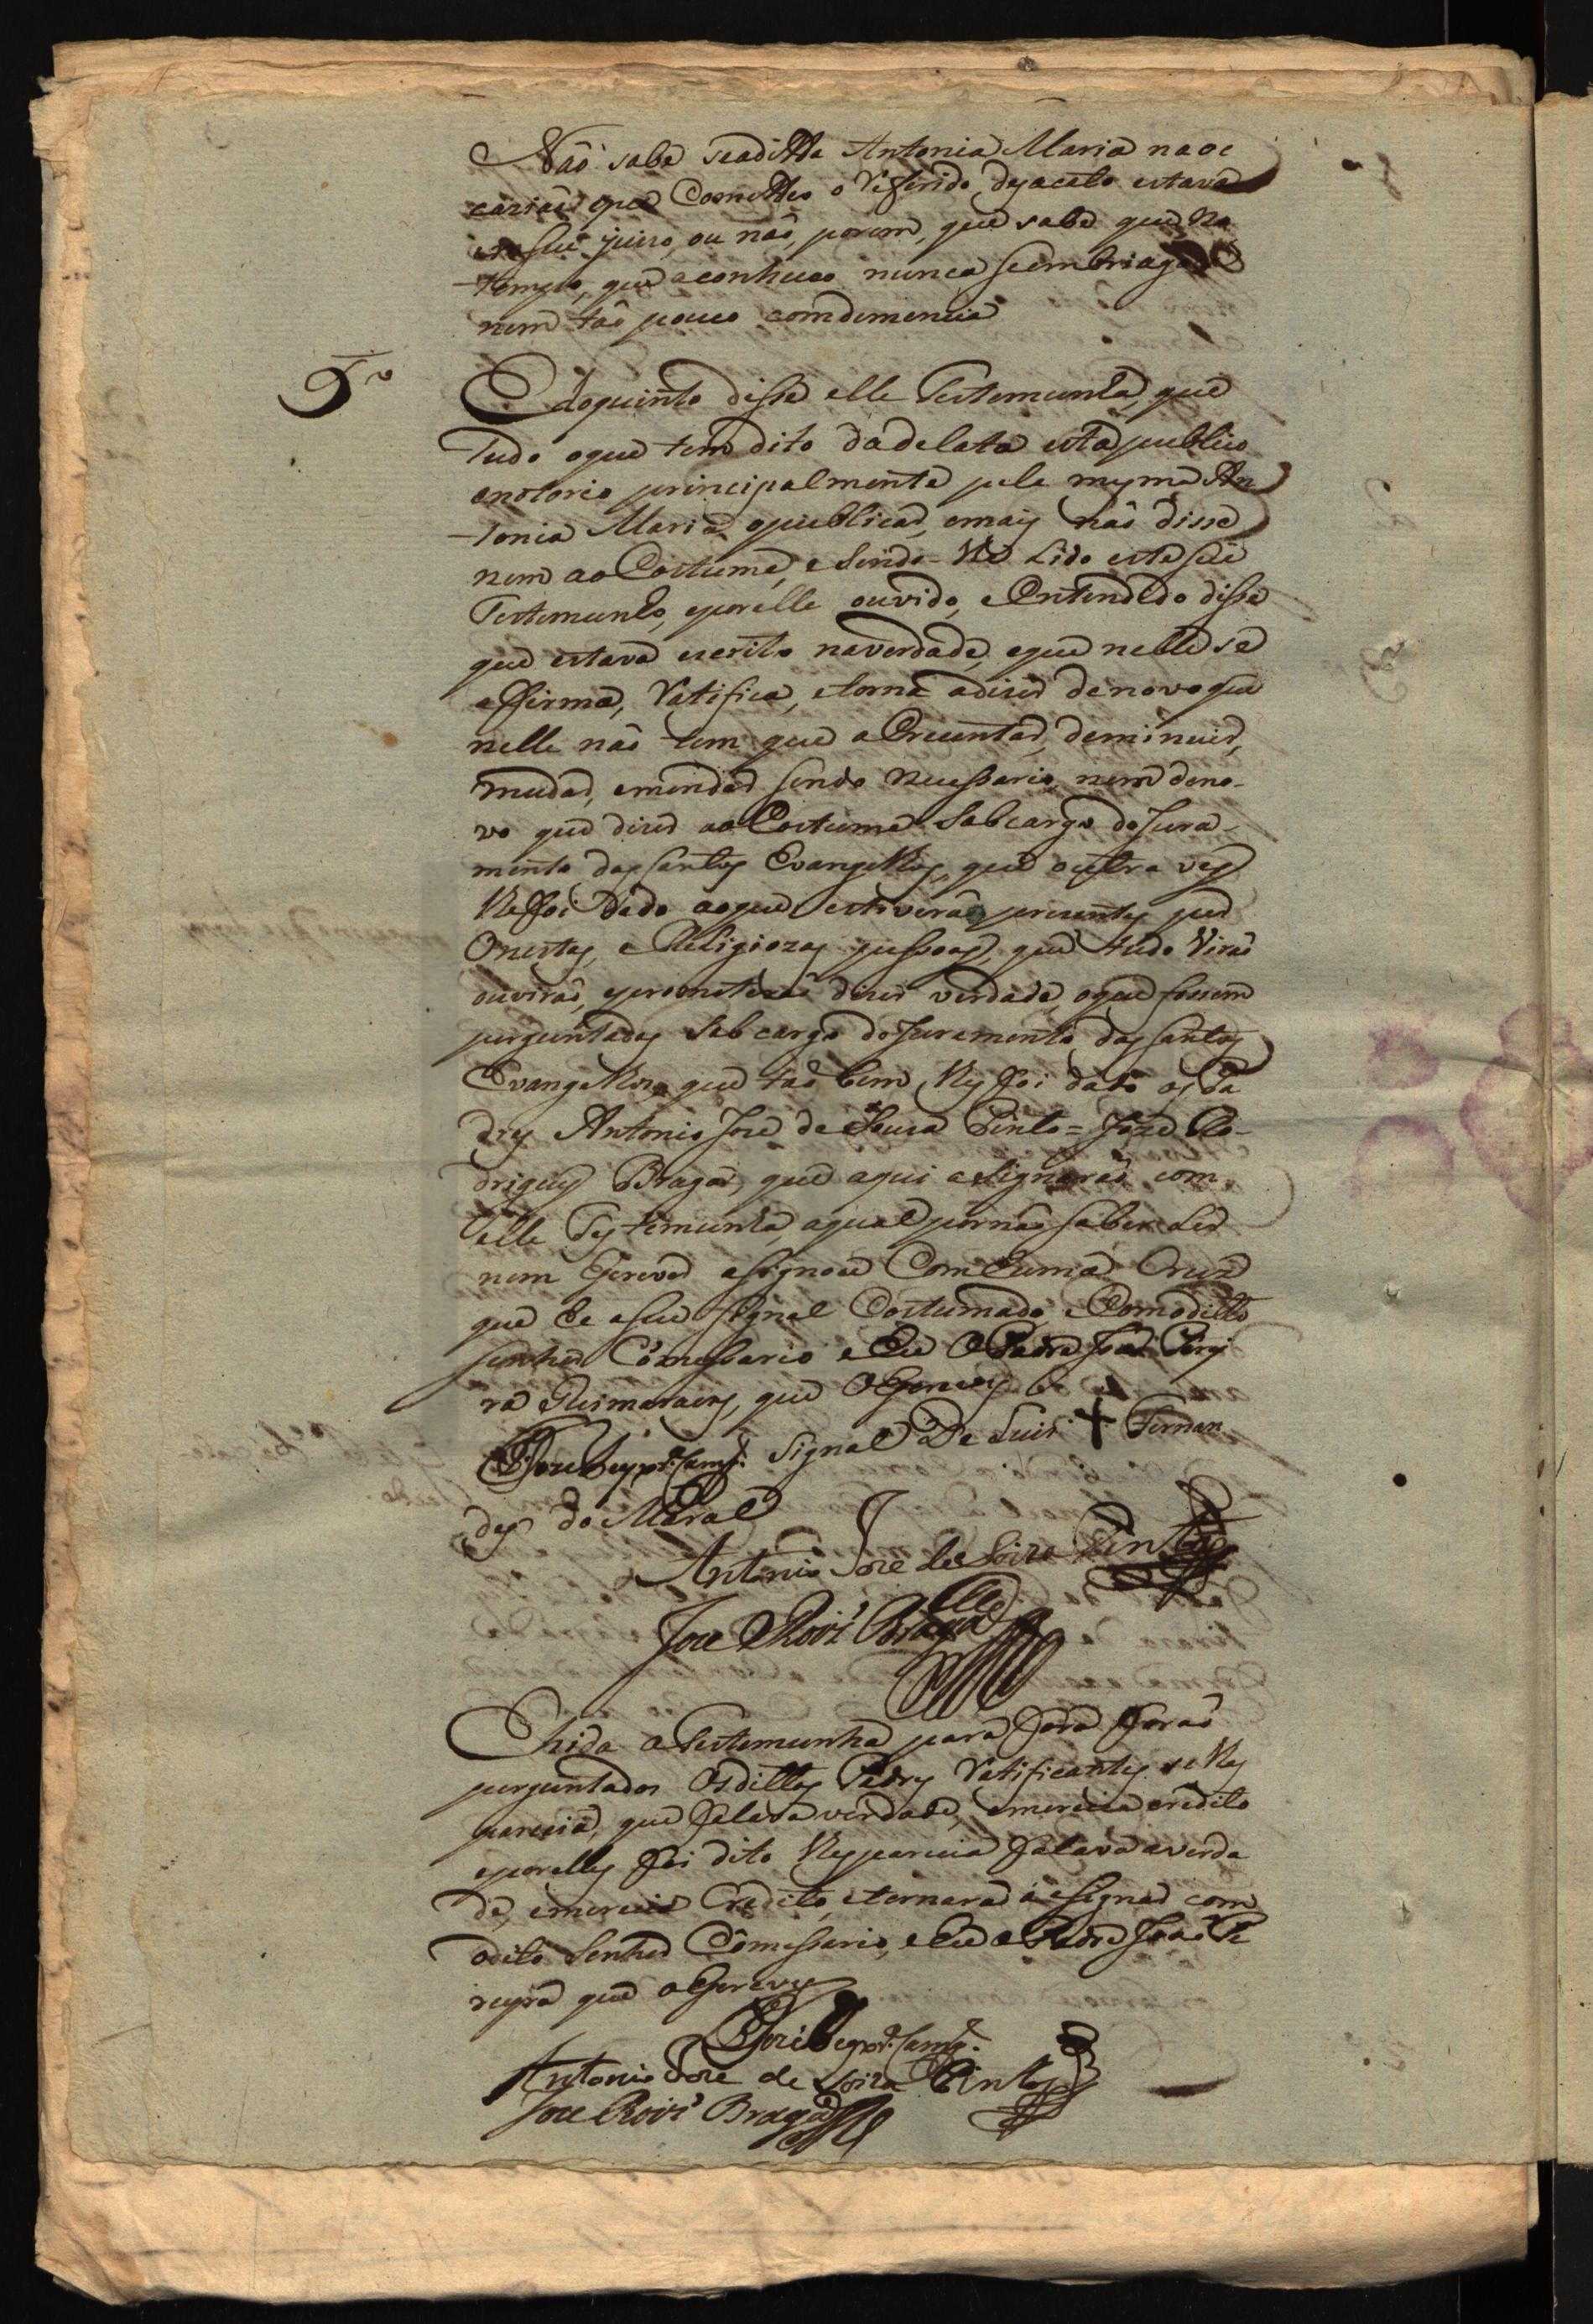 Não sabe sea ditta Antonia Maria na oc
cazião que Cometteo o Referido dezacato estava
em seu juizo, ou não, porem, que sabe que no
tempo, que a conheceo nunca se embriagou
nem tão pouco com demencia
5º
E do quinto disse elle Testemunha, que
Tudo o que tem dito da delata está publico
enotorio principalmente pela mesma An
tonia Maria o publicar, emais não disse
nem ao Costume, e sendo-lhe Lido este seu
Testemunho, e por elle ouvido, e Entendido disse
que estava escrito na verdade, eque nelle se
affirma, Ratifica, e torna a dizer de novo que
nelle não tem que a Crecentar, deminuir,
mudar, emendar sendo necessario, nem deno-
vo que dizer ao Costume sob cargo do Jura-
mento dos Santos Evangelhos, que outra vez
lhe foi dado ao que estiverão prezentes por
Onestas, e Religiozas pessoas, que tudo Virão
ouvirão, e prometerão dizer verdade, o que fossem
perguntados sob cargo do Juramento dos Santos
Evangelhos que tão bem lhes foi dado os Pa
dres Antonio Jose de Souza Pinto = Joze Ro-
drigues Braga, que aqui asignarão com
elle Testemunha, a qual por não saber Ler
nem Escrever asignou Com huma Cruz
que he o seu signal Costumado e Com o ditto
senhor Cômessario e Eu O Padre João Perei
ra Guimaraens, que O Escrevy
Signal De Luis + Fernan
des do Maral
Antonio Joze de Soiza Pinto
Joze Roiz Braga
E hida a Testemunha para fora forão
perguntados Os dittos Padres Ratificantes se lhes
parecia, que falava verdade, e merecia credito
e por elles foi dito lhes parecia falava a verda
de, e merecia Credito, e tornarão a asignar com
o dito senhor Cômessario, e Eu o Padre João Pe
reyra que o Escrevy
Antonio Joze de Soiza Pinto
Joze Roiz Braga